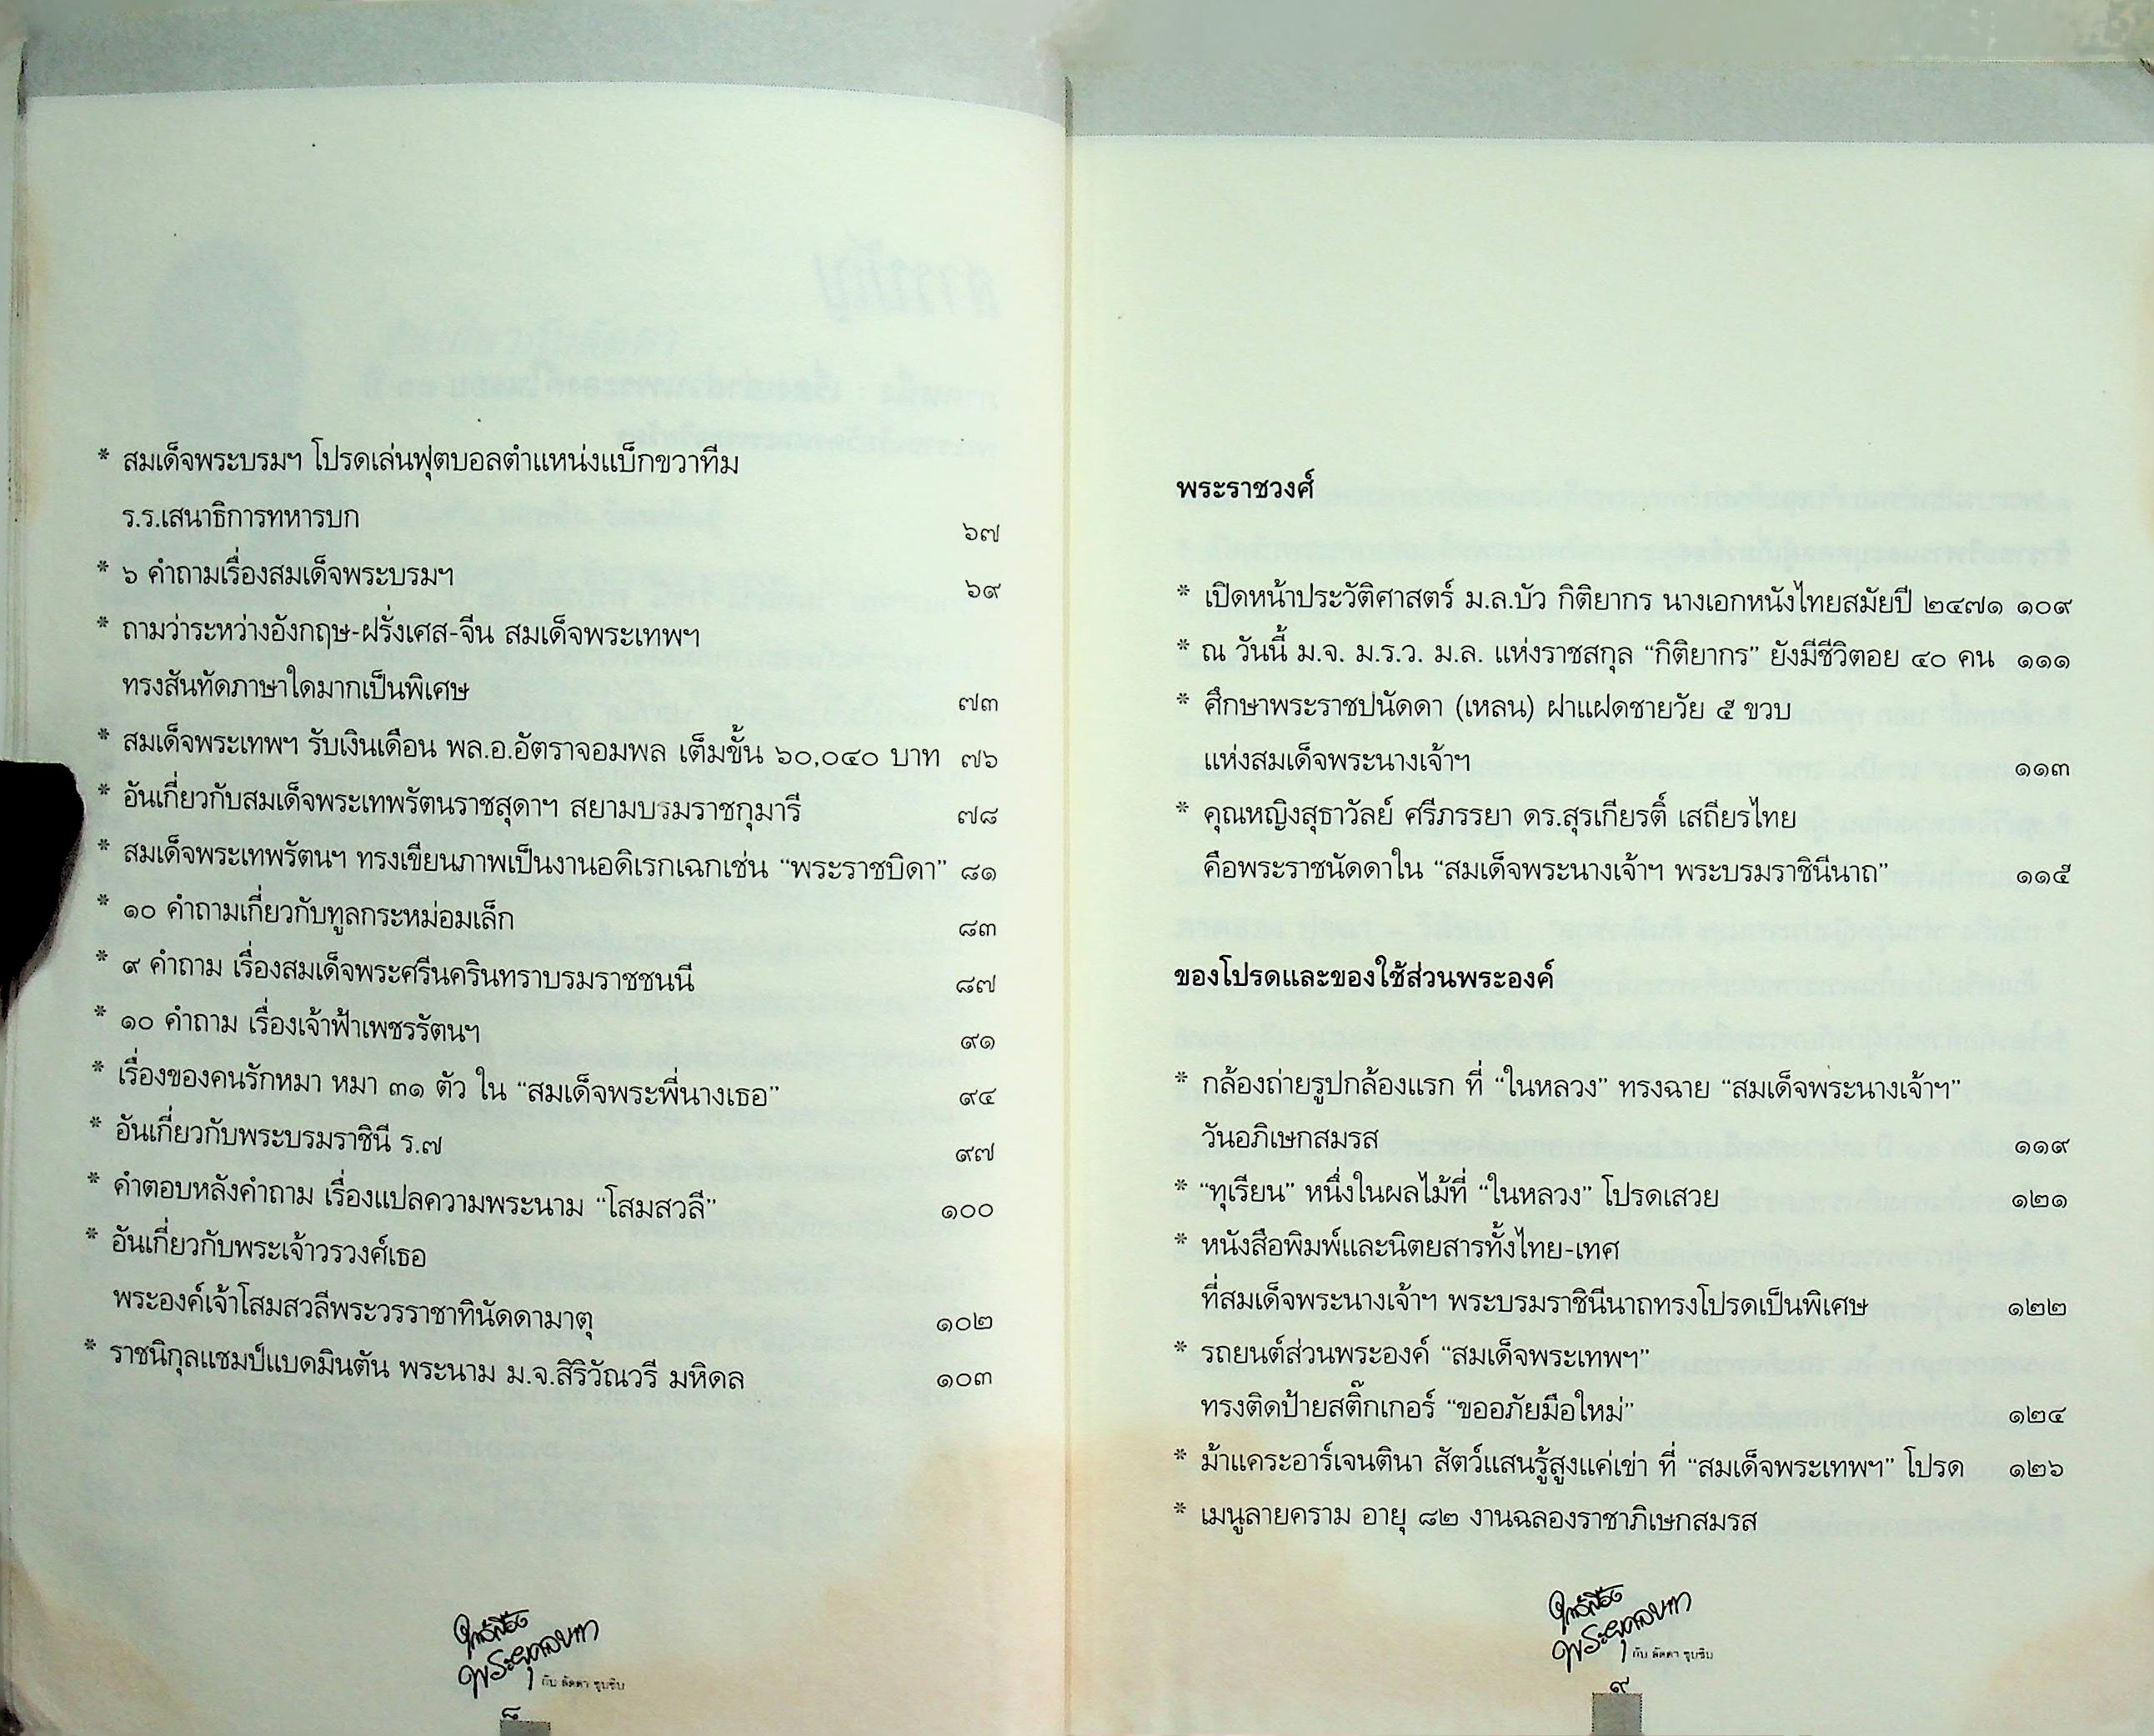 * สมเด็จพระบรมฯ โปรดเล่นฟุตบอลตำแหน่งแบ็กขวาทีม
ร.ร.เสนาธิการทหารบก ๖๗
* ๖ คำถามเรื่องสมเด็จพระบรมฯ ๖๙
* ถามว่าระหว่างอังกฤษ-ฝรั่งเศส-จีน สมเด็จพระเทพฯ
ทรงสันทัดภาษาใดมากเป็นพิเศษ ๗๓
* สมเด็จพระเทพฯ รับเงินเดือน พล.อ.อัตราจอมพล เต็มขั้น ๖๐,๐๔๐ บาท ๗๖
* อันเกี่ยวกับสมเด็จพระเทพรัตนราชสุดาฯ สยามบรมราชกุมารี ๗๘
* สมเด็จพระเทพรัตนฯ ทรงเขียนภาพเป็นงานอดิเรกเฉกเช่น “พระราชบิดา” ๘๑
* ๑๐ คำถามเกี่ยวกับทูลกระหม่อมเล็ก ๘๓
* ๙ คำถาม เรื่องสมเด็จพระศรีนครินทราบรมราชชนนี ๘๗
* ๑๐ คำถาม เรื่องเจ้าฟ้าเพชรรัตนฯ ๙๑
* เรื่องของคนรักหมา หมา ๓๑ ตัว ใน “สมเด็จพระพี่นางเธอ” ๙๔
* อันเกี่ยวกับพระบรมราชินี ร.๗ ๙๗
* คำตอบหลังคำถาม เรื่องแปลความพระนาม “โสมสวลี” ๑๐๐
* อันเกี่ยวกับพระเจ้าวรวงศ์เธอ
พระองค์เจ้าโสมสวลีพระวรราชาทินัดดามาตุ ๑๐๒
* ราชนิกุลแชมป์แบดมินตัน พระนาม ม.จ.สิริวัณวรี มหิดล ๑๐๓
ใต้เบื้อง
พระยุคลบาท
กับ ลัดดา ซุบซิบ
๘
พระราชวงศ์
* เปิดหน้าประวัติศาสตร์ ม.ล.บัว กิติยากร นางเอกหนังไทยสมัยปี ๒๔๗๑ ๑๐๙
* ณ วันนี้ ม.จ. ม.ร.ว. ม.ล. แห่งราชสกุล “กิติยากร” ยังมีชีวิตอย ๔๐ คน ๑๑๑
* ศึกษาพระราชปนัดดา (เหลน) ฝาแฝดชายวัย ๕ ขวบ
แห่งสมเด็จพระนางเจ้าฯ ๑๑๓
* คุณหญิงสุธาวัลย์ ศรีภรรยา ดร.สุรเกียรติ์ เสถียรไทย
คือพระราชนัดดาใน “สมเด็จพระนางเจ้าฯ พระบรมราชินีนาถ” ๑๑๕
ของโปรดและของใช้ส่วนพระองค์
* กล้องถ่ายรูปกล้องแรก ที่ “ในหลวง” ทรงฉาย “สมเด็จพระนางเจ้าฯ”
วันอภิเษกสมรส ๑๑๙
* “ทุเรียน” หนึ่งในผลไม้ที่ “ในหลวง” โปรดเสวย ๑๒๑
* หนังสือพิมพ์และนิตยสารทั้งไทย-เทศ
ที่สมเด็จพระนางเจ้าฯ พระบรมราชินีนาถทรงโปรดเป็นพิเศษ ๑๒๒
* รถยนต์ส่วนพระองค์ “สมเด็จพระเทพฯ”
ทรงติดป้ายสติ๊กเกอร์ “ขออภัยมือใหม่” ๑๒๔
* ม้าแคระอาร์เจนตินา สัตว์แสนรู้สูงแค่เข่า ที่ “สมเด็จพระเทพฯ” โปรด ๑๒๖
* เมนูลายคราม อายุ ๘๒ งานฉลองราชาภิเษกสมรส
ใต้เบื้อง
พระยุคลบาท
กับ ลัดดา ซุบซิบ
๙